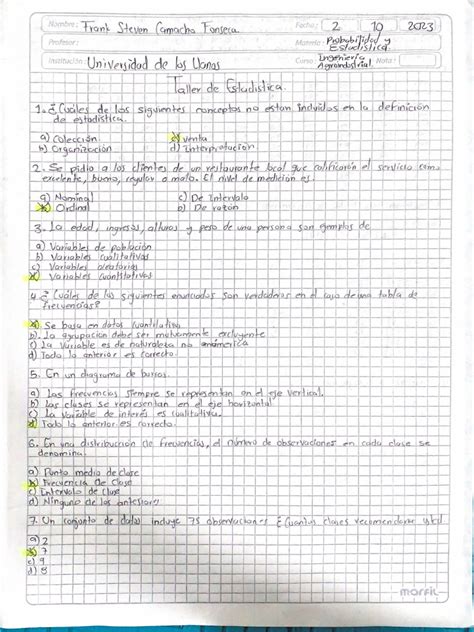 Nombre: Frank Steven Camacho Fonseca Fecha: 2 10 2023
Profesor: Materia: Probabilidad y Estadistica
Institución: Universidad de los Llanos Curso: Ingeniería Agroindustrial Nota:
Taller de Estadistica.
1. ¿Cuáles de los siguientes conceptos no estan incluidos en la definición
de estadistica.
a) Colección c) Venta
b) Organización d) Interpretación
2. Se pidio a los clientes de un restaurante local que calificarón el servicio como
excelente, bueno, regular o malo. El nivel de medición es.
a) Nominal c) De Intervalo
b) Ordinal b) De razón
3. La edad, ingresos, alturas y peso de una persona son ejemplos de
a) Variables de población
b) Variables cualitativas
c) Variables aleatorias
d) Variables Cuantitativas
4. ¿Cuáles de los siguientes enunciados son verdaderos en el caso de una tabla de
frecuencias?
a) Se basa en datos cuantitativo
b) La agrupación debe ser mutuamente excluyente
c) La Variable es de naturaleza no numérica
d) Todo lo anterior es correcto.
5. En un diagrama de barras.
a) Las frecuencias siempre se representan en el eje vertical.
b) Las clases se representan en el eje horizontal
c) La Variable de interés es cualitativa.
d) Todo lo anterior es correcto.
6. En una distribución de frecuencias, el número de observaciones en cada clase se
denomina.
a) Punto medio de clase
b) Frecuencia de Clase
c) Intervalo de Clase
d) Ninguno de los anteriores
7. Un conjunto de datos incluye 75 observaciones ¿Cuantas clases recomendaria usted
a) 2
b) 7
c) 9
d) 8
morfil